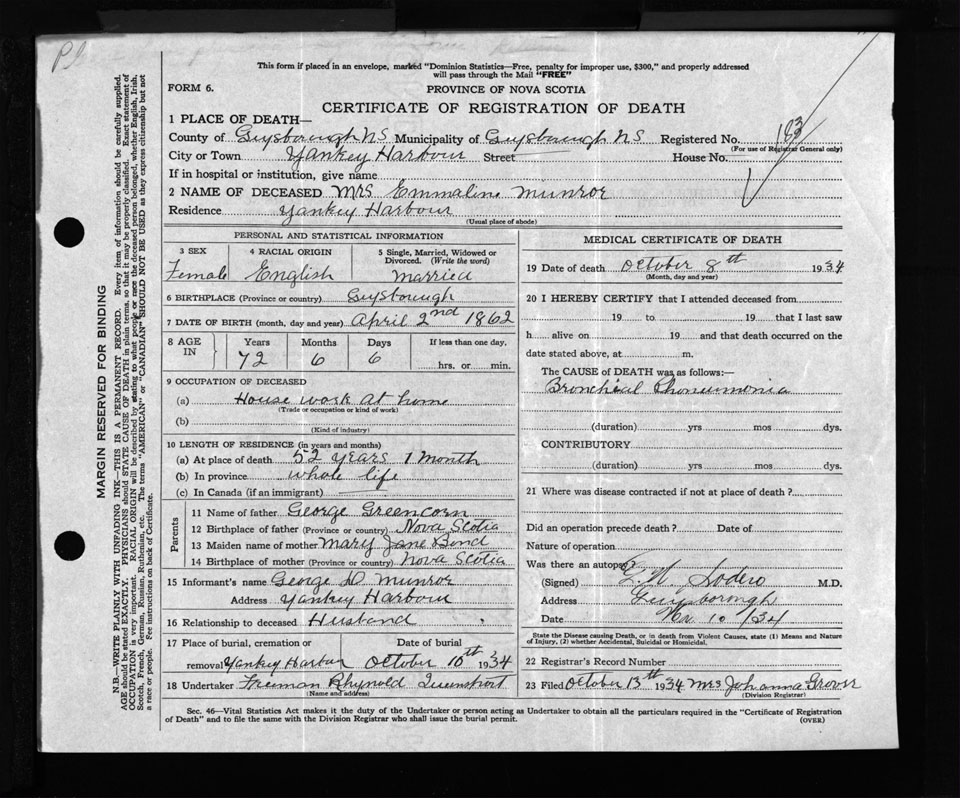 This form if placed in an envelope, marked "Dominion Statistics—Free, penalty for improper use, $300," and properly addressed
will pass through the Mail "FREE"
FORM 6.
PROVINCE OF NOVA SCOTIA
CERTIFICATE OF REGISTRATION OF DEATH
1 PLACE OF DEATH—
County of Guysborough NS Municipality of Guysborough NS Registered No. 183
(For use of Registrar General only)
City or Town Yankey Harbour Street House No.
If in hospital or institution, give name
2 NAME OF DECEASED Mrs Emmaline Munroe
Residence Yankey Harbour
(Usual place of abode)
PERSONAL AND STATISTICAL INFORMATION
3 SEX 4 RACIAL ORIGIN 5 Single, Married, Widowed or Divorced. (Write the word)
Female English Married
6 BIRTHPLACE (Province or country) Guysborough
7 DATE OF BIRTH (month, day and year) April 2nd 1862
8 AGE IN Years Months Days If less than one day.
72 6 6 hrs. or min.
9 OCCUPATION OF DECEASED
(a) House work at home
(Trade or occupation or kind of work)
(b)
(Kind of industry)
10 LENGTH OF RESIDENCE (in years and months)
(a) At place of death 52 years 1 month
(b) In province whole life
(c) In Canada (if an immigrant)
Parents
11 Name of father George Greencorn
12 Birthplace of father (Province or country) Nova Scotia
13 Maiden name of mother Mary Jane Bond
14 Birthplace of mother (Province or country) Nova Scotia
15 Informant's name George D. Munroe
Address Yankey Harbour
16 Relationship to deceased Husband
17 Place of burial, cremation or Date of burial
removal Yankey Harbur October 10th 1934
18 Undertaker Freeman Rhynold Queensport
(Name and address)
MEDICAL CERTIFICATE OF DEATH
19 Date of death October 8th 1934
(Month, day and year)
20 I HEREBY CERTIFY that I attended deceased from
19 to 19 that I last saw
h alive on 19 and that death occurred on the
date stated above, at m.
The CAUSE of DEATH was as follows:—
Bronchial Phoneumonia
(duration) yrs mos dys.
CONTRIBUTORY
(duration) yrs mos dys.
21 Where was disease contracted if not at place of death?
Did an operation precede death? Date of
Nature of operation
Was there an autopsy
(Signed) Sodero M.D.
Address Guysborough
Date Nov. 10 /34
State the Disease causing Death, or in death from Violent Causes, state (1) Means and Nature
of Injury, (2) whether Accidental, Suicidal or Homicidal.
22 Registrar's Record Number
23 Filed October 13th 1934 Mrs Johanna Grover
(Division Registrar)
Sec. 46—Vital Statistics Act makes it the duty of the Undertaker or person acting as Undertaker to obtain all the particulars required in the "Certificate of Registration
of Death" and to file the same with the Division Registrar who shall issue the burial permit.
(OVER)
MARGIN RESERVED FOR BINDING
N.B.—WRITE PLAINLY WITH UNFADING INK—THIS IS A PERMANENT RECORD. Every item of information should be carefully supplied.
AGE should be stated EXACTLY. PHYSICIANS should STATE CAUSE OF DEATH in plain terms, so that it may be properly classified. Exact statement of
OCCUPATION is very important. RACIAL ORIGIN will be described by stating to what people or race the deceased person belonged, whether English, Irish,
Scotch, French, German, Russian, Ruthenian, etc. The terms "AMERICAN" or "CANADIAN" SHOULD NOT BE USED as they express citizenship but not
a race or people. Fee instructions on back of Certificate.